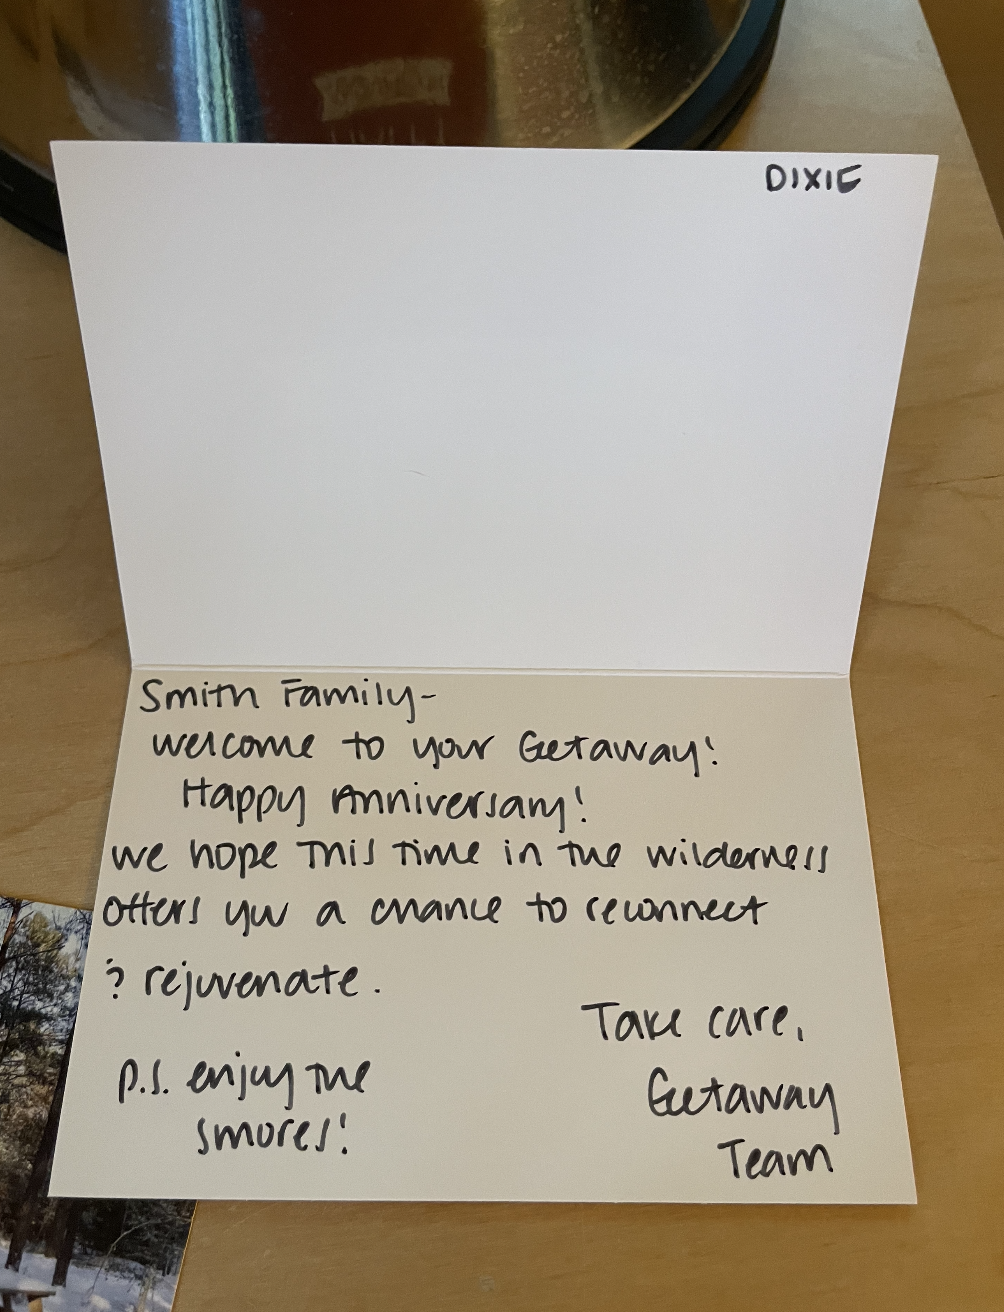 DIXIE
Smith Family-
welcome to your Getaway!
Happy Anniversary!
we hope this time in the wilderness
offers you a chance to reconnect
& rejuvenate.
Take care,
Getaway
Team
P.S. enjoy the
smores!